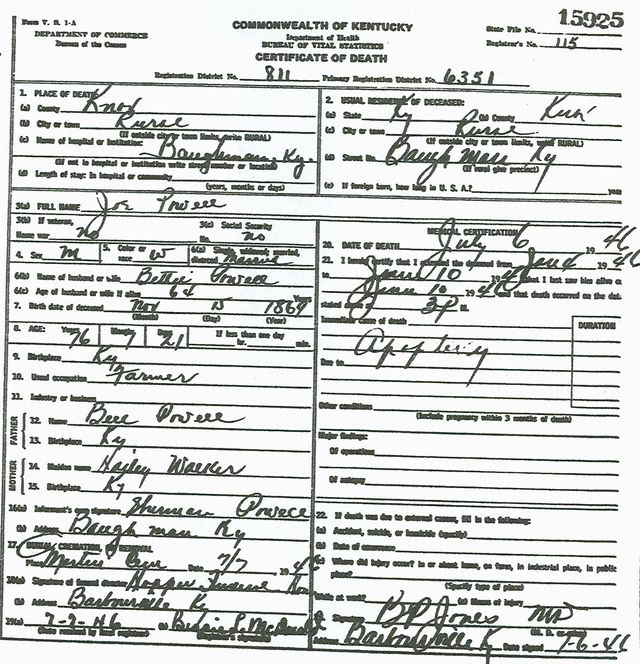 Form V. S. 1-A
DEPARTMENT OF COMMERCE
Bureau of the Census
COMMONWEALTH OF KENTUCKY
Department of Health
BUREAU OF VITAL STATISTICS
CERTIFICATE OF DEATH
State File No. 15925
Registrar's No. 115
Registration District No. 811 Primary Registration District No. 6351
1. PLACE OF DEATH
(a) County Knox
(b) City or town Rural
(If outside city or town limits, write RURAL)
(c) Name of hospital or institution: Baughman, Ky.
(If not in hospital or institution write street number or location)
(d) Length of stay: In hospital or community
(years, months or days)
2. USUAL RESIDENCE OF DECEASED:
(a) State Ky (b) County
(c) City or town Rural
(If outside city or town limits, write RURAL)
(d) Street No. Baughman Ky
(If rural give precinct)
(e) If foreign born, how long in U. S. A.? years
3(a) FULL NAME Joe Powell
3(b) If veteran, Name war no
3(c) Social Security No. no
4. Sex M 5. Color or race W 6(a) Single, widowed, married, divorced Married
6(b) Name of husband or wife Bettie Powell
6(c) Age of husband or wife if alive 64 Years
7. Birth date of deceased Nov 15 1869
(Month) (Day) (Year)
8. AGE: Years 76 Months 7 Days 21 If less than one day hr. min.
9. Birthplace Ky
10. Usual occupation Farmer
11. Industry or business
FATHER
12. Name Powell
13. Birthplace Ky
MOTHER
14. Maiden name Walker
15. Birthplace Ky
16(a) Informant's own signature Sherman Powell
(b) Address Baughman Ky
17. BURIAL, CREMATION, REMOVAL
Place Date 7/7 19 46
18(a) Signature of funeral director Hopper Funeral Home
(b) Address Barbourville Ky
19(a) 7-7-46 (b) McDonald
(Date received by local registrar) (Registrar's signature)
MEDICAL CERTIFICATION
20. DATE OF DEATH July 6 1946
21. I hereby certify that I attended the deceased from 19 46
to June 10 19 46 that I last saw him alive on
June 10 19 46 and that death occurred on the date
stated at M.
Immediate cause of death
DURATION
Due to
Other conditions
(Include pregnancy within 3 months of death)
Major findings:
Of operations
Of autopsy
22. If death was due to external causes, fill in the following:
(a) Accident, suicide, or homicide (specify)
(b) Date of occurrence
(c) Where did injury occur? in or about home, on farm, in industrial place, in public
place?
(Specify type of place)
While at work? (e) Means of injury
Signature B P Jones MD
(M. D. or other)
Address Barbourville Ky Date signed 7-6-46